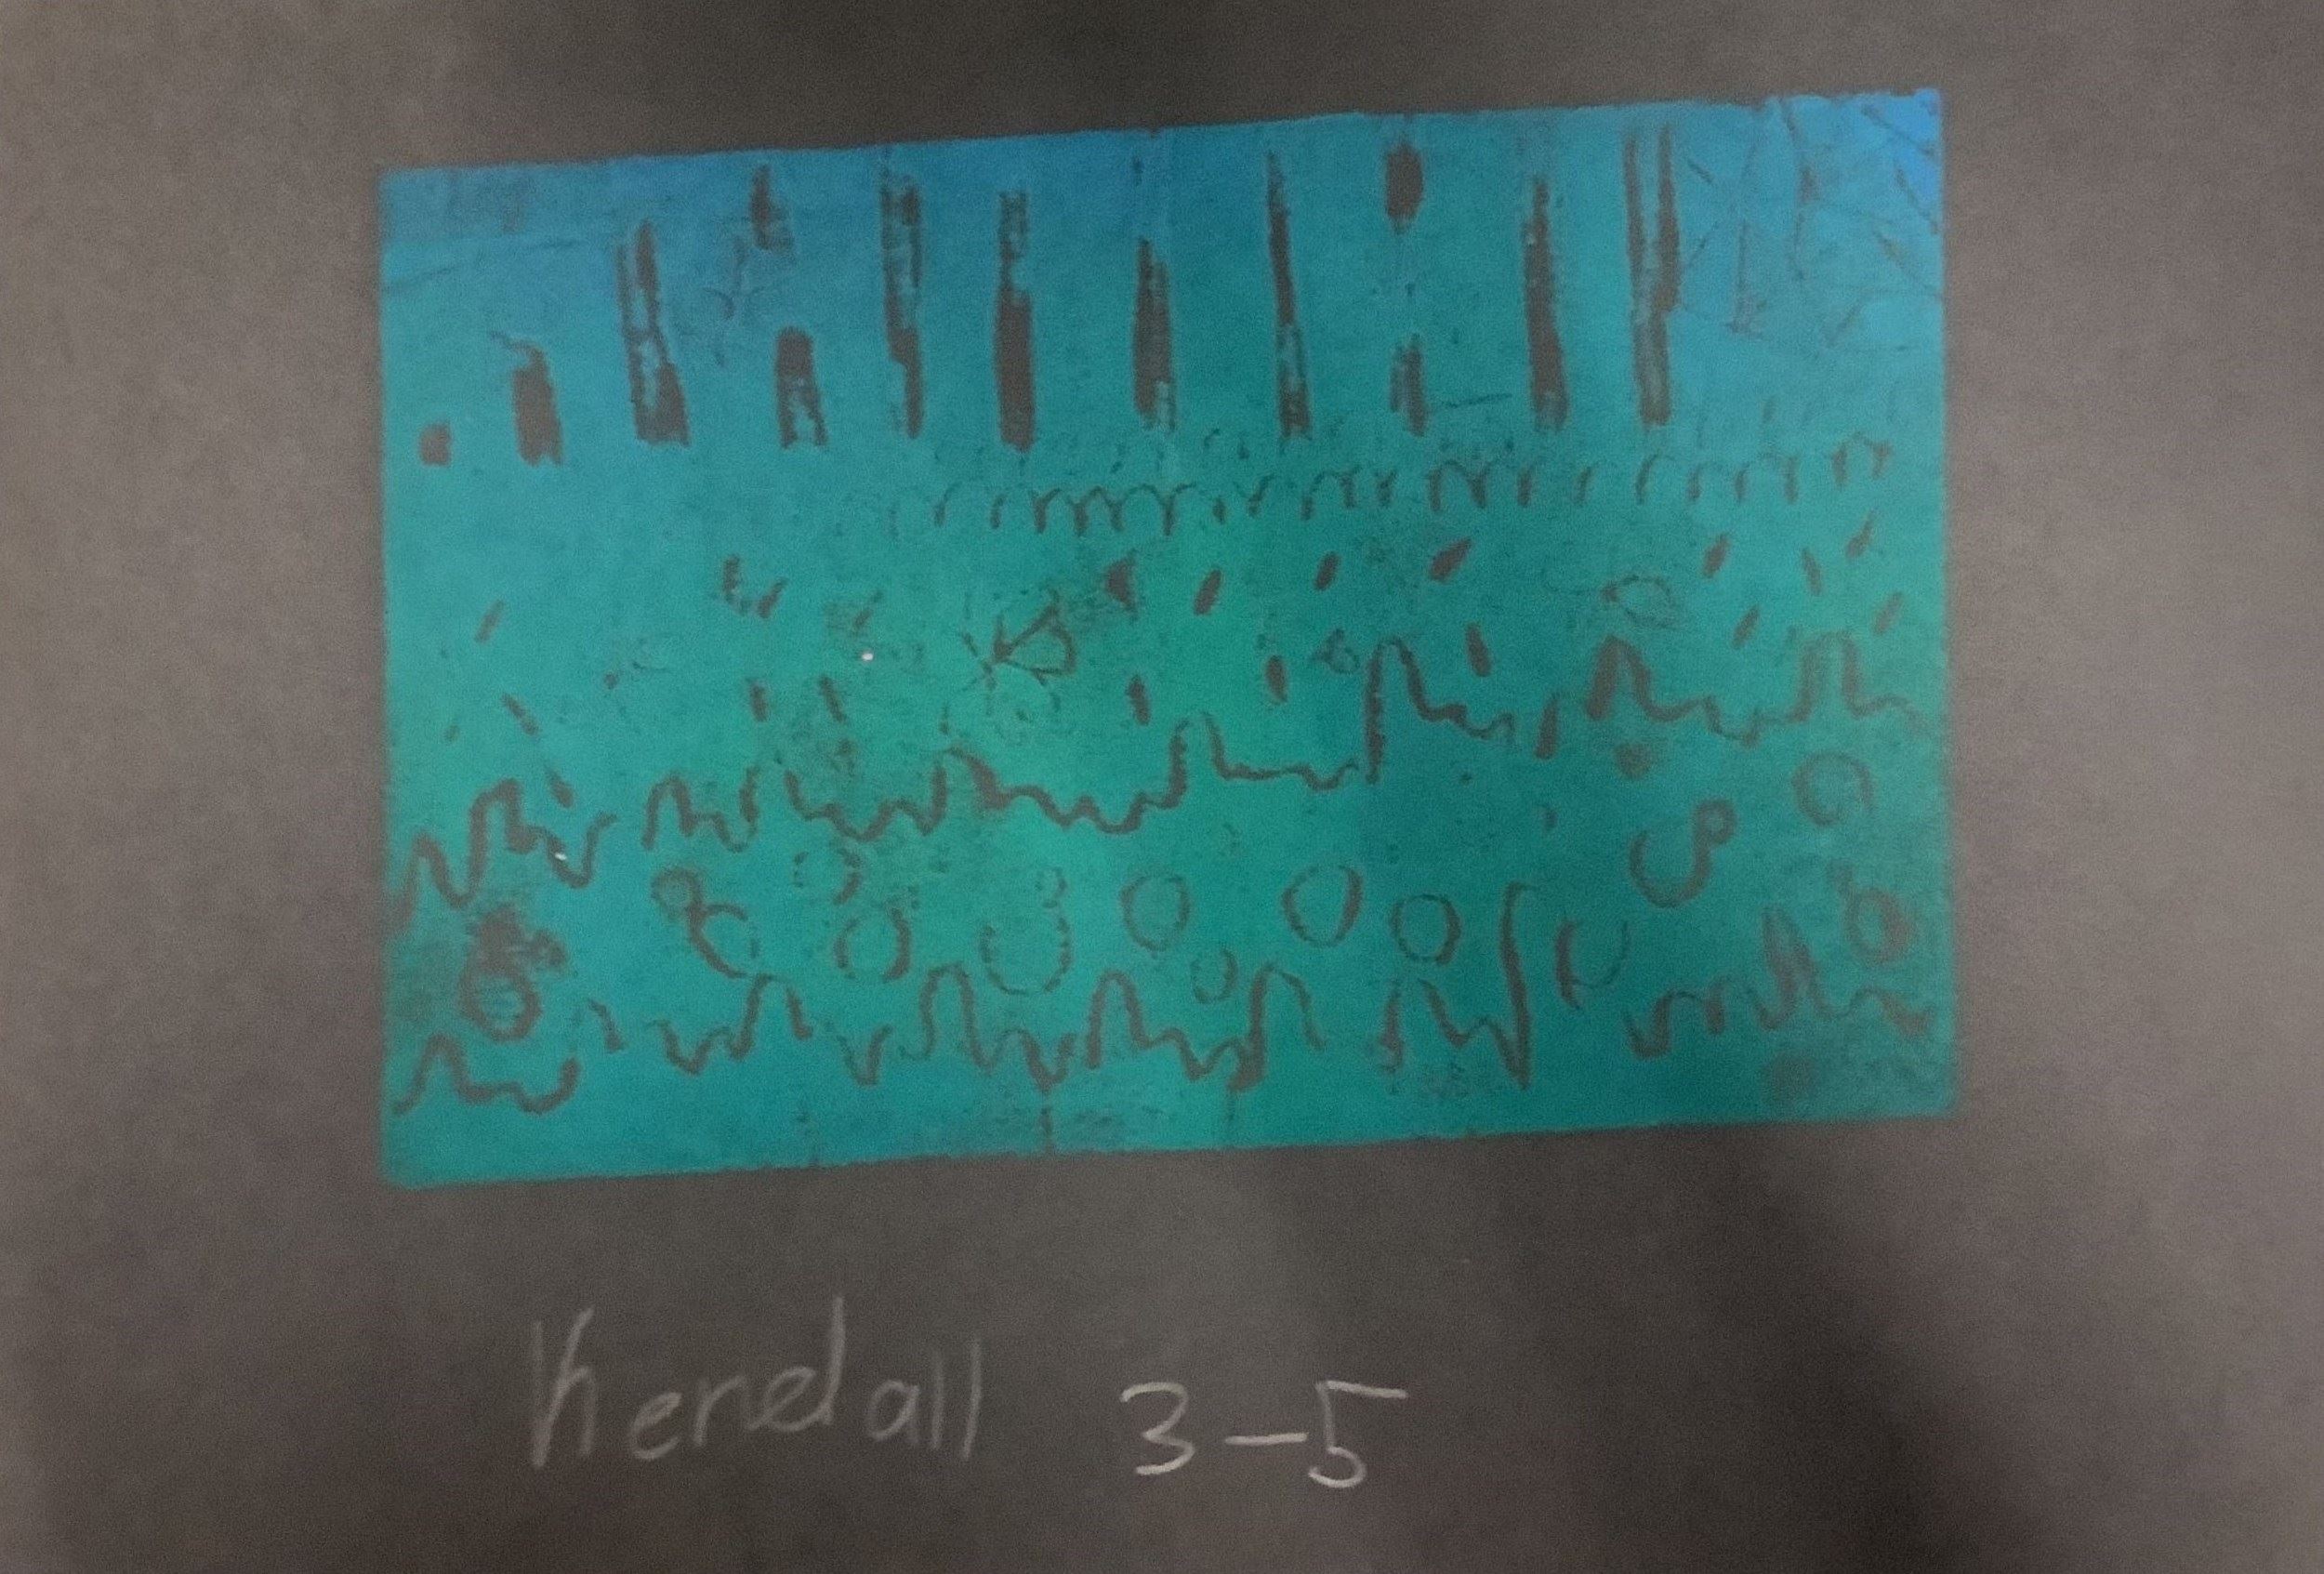 Kendall 3-5